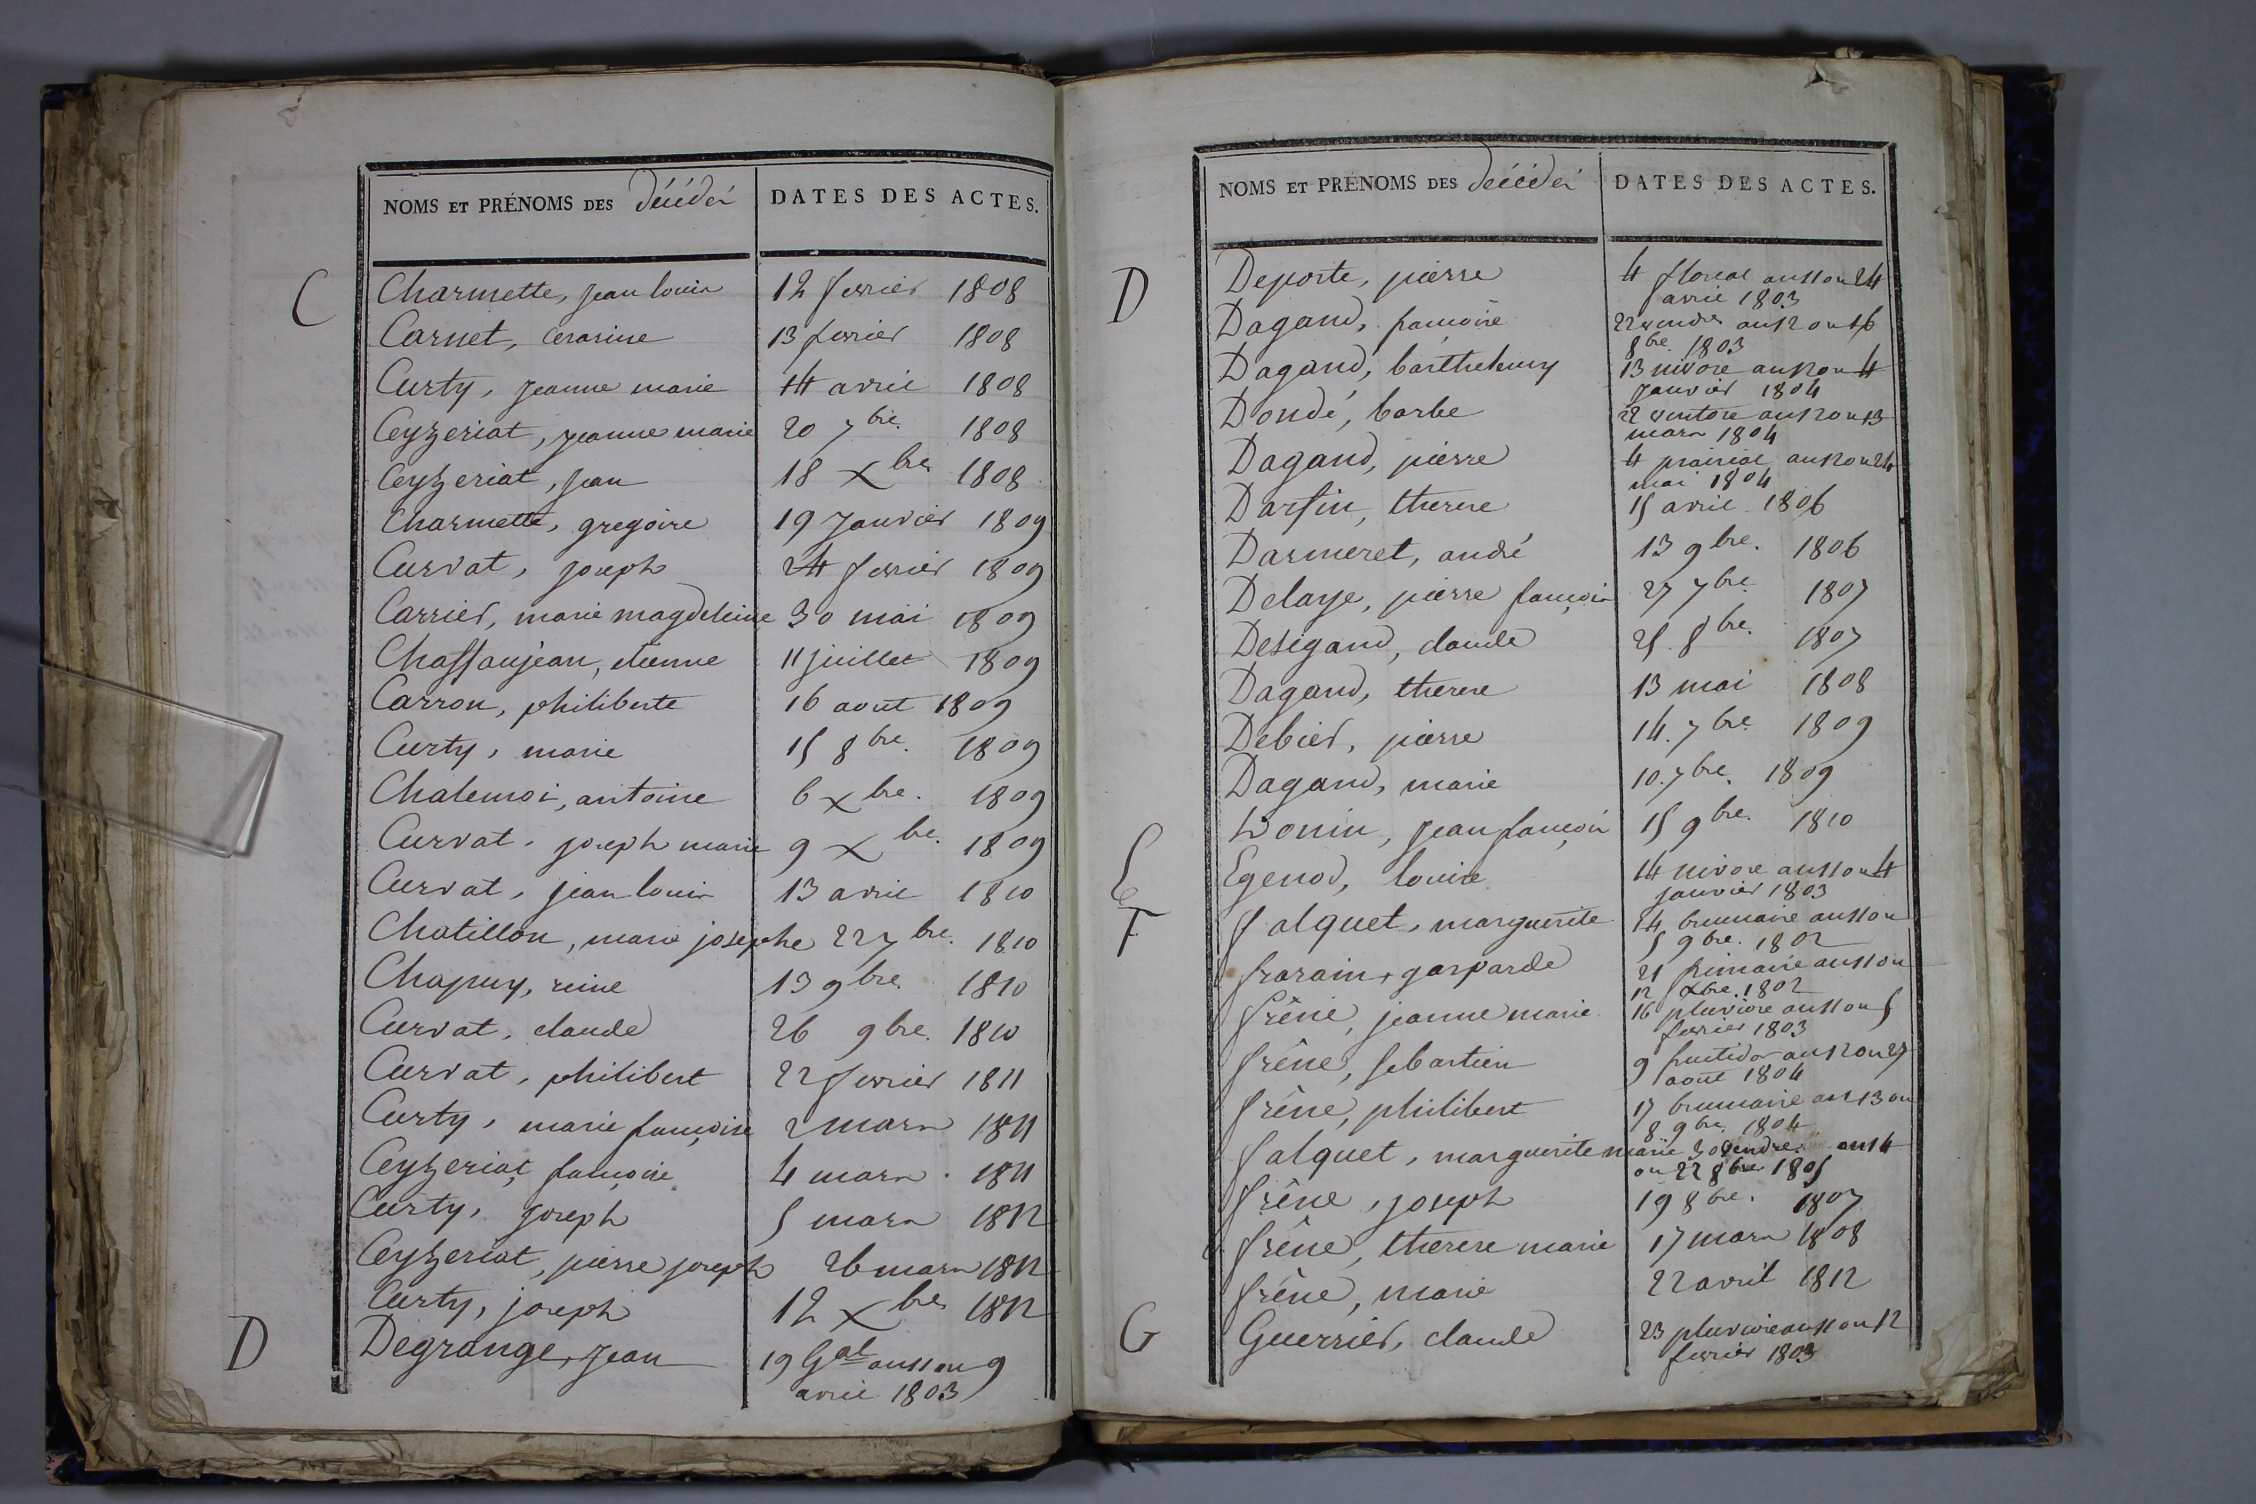 NOMS ET PRÉNOMS DES décédés DATES DES ACTES.
C
Charmette, jean louis 12 fevrier 1808
Carnet, cesarine 13 fevrier 1808
Curty, jeanne marie 14 avril 1808
Ceyzeriat, jeanne marie 20 7bre. 1808
Ceyzeriat, jean 18 Xbre 1808
Charmette, gregoire 19 janvier 1809
Curvat, joseph 24 fevrier 1809
Carrier, marie magdeleine 30 mai 1809
Chaffanjean, etienne 11 juillet 1809
Carron, philiberte 16 aout 1809
Curty, marie 15 8bre. 1809
Chalemoi, antoine 6 Xbre. 1809
Curvat, joseph marie 9 Xbre. 1809
Curvat, jean louis 13 avril 1810
Chatillon, marie josephe 22 7bre. 1810
Chapuy, reine 13 9bre. 1810
Curvat, claude 26 9bre. 1810
Curvat, philibert 22 fevrier 1811
Curty, marie françoise 2 mars 1811
Ceyzeriat, françoise 4 mars 1811
Curty, joseph 5 mars 1812
Ceyzeriat, pierre joseph 26 mars 1812
Curty, joseph 12 Xbre 1812
D
Degrange, jean 19 Gal an 11 ou 9
avril 1803
NOMS ET PRÉNOMS DES décédés DATES DES ACTES.
D
Deporte, pierre 4 floreal an 11 ou 24
avril 1803
Dagand, françoise 22 vendre an 12 ou 16
8bre. 1803
Dagand, barthelemy 13 nivose an 12 ou 4
janvier 1804
Dondé, barbe 22 ventose an 12 ou 13
mars 1804
Dagand, pierre 4 prairial an 12 ou 24
mai 1804
Darfin, therese 15 avril 1806
Darmeret, andré 13 9bre. 1806
Delaye, pierre françois 27 7bre. 1807
Desigand, claude 25. 8bre. 1807
Dagand, therese 13 mai 1808
Debier, pierre 14. 7bre. 1809
Dagand, marie 10. 7bre. 1809
Donin, jean françois 15 9bre. 1810
E
Egenod, louise 14 nivose an 11 ou 4
janvier 1803
F
falquet, marguerite 14 brumaire an 11 ou
5 9bre. 1802
frarain, gasparde 21 frimaire an 11 ou
12 Xbre. 1802
frêne, jeanne marie 16 pluviose an 11 ou 5
fevrier 1803
frêne, sebastien 9 fructidor an 12 ou 27
aout 1804
frêne, philibert 17 brumaire an 13 ou
8 9bre. 1804
falquet, marguerite marie 30 vendre. an 14
ou 22 8bre. 1805
frêne, joseph 19 8bre. 1807
frêne, therese marie 17 mars 1808
frêne, marie 22 avril 1812
G
Guerrier, claude 23 pluviose an 11 ou 12
fevrier 1803